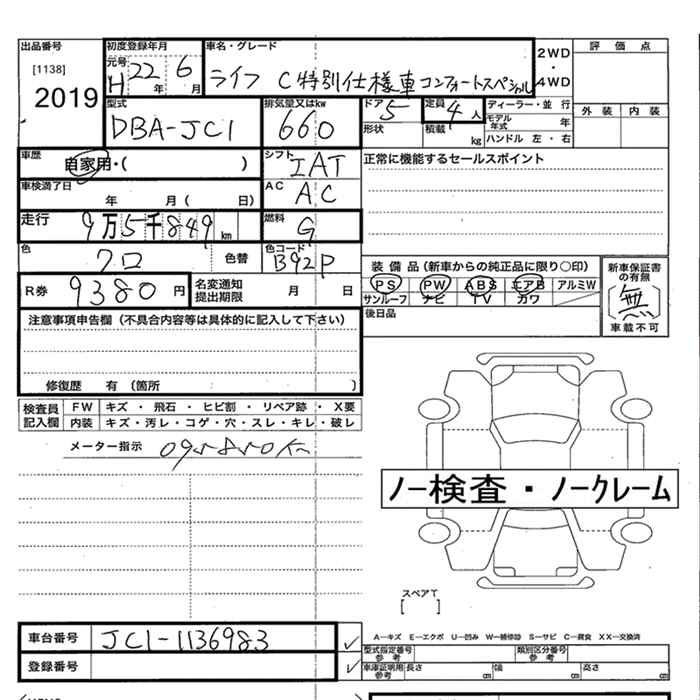 出品番号
[1138]
2019
初度登録年月
元号
H 22年 6月
車名・グレード
ライフ C特別仕様車コンフォートスペシャル
2WD
・
4WD
評価点
外装 内装
型式
DBA-JC1
排気量又はkw
660
ドア
5
定員
4人
形状
積載 kg
ディーラー・並行
モデル年式 年
ハンドル 左・右
車歴
自家用・( )
シフト
IAT
正常に機能するセールスポイント
車検満了日
年 月( 日)
AC
AC
走行
9万5千849km
燃料
G
色
クロ
色替
色コード
B92P
装備品(新車からの純正品に限り○印)
PS PW ABS エアB アルミW
サンルーフ ナビ TV カワ
新車保証書の有無
無
車載不可
R券 9380円
名変通知提出期限 月 日
後日品
注意事項申告欄(不具合内容等は具体的に記入して下さい)
修復歴 有(箇所 )
検査員記入欄
FW キズ・飛石・ヒビ割・リペア跡・X要
内装 キズ・汚レ・コゲ・穴・スレ・キレ・破レ
メーター指示 095850K
ノー検査・ノークレーム
スペアT
[ ]
車台番号 JC1-1136983
登録番号
A—キズ E—エクボ U—凹み W—補修跡 S—サビ C—腐食 XX—交換済
型式指定番号 参考
類別区分番号 参考
車庫証明用 参考
長さ cm
幅 cm
高さ cm